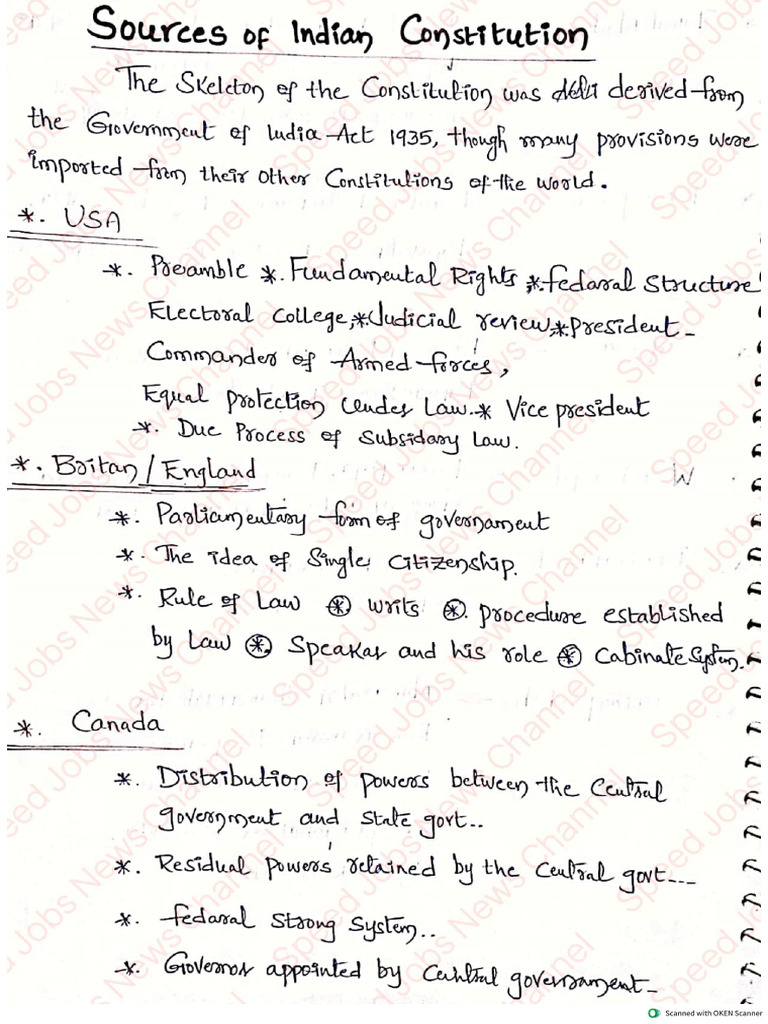 Sources of Indian Constitution
The Skeleton of the Constitution was derived from
the Government of India Act 1935, though many provisions were
imported from their other Constitutions of the world.
*. USA
*. Preamble *. Fundamental Rights *. fedaral Structure
Electoral College, *Judicial review *President -
Commander of Armed forces,
Equal protection under Law. * Vice president
*. Due Process of Subsidary Law.
*. Britan / England
*. Parliamentary form of governament
*. The idea of Single Citizenship.
*. Rule of Law * writs *. procedure established
by Law * Speakar and his role * Cabinate System.
*. Canada
*. Distribution of powers between the Central
government and state govt..
*. Residual powers retained by the Central govt...
*. fedaral Strong System..
*. Governor appointed by Central governament -
Speed Jobs News Channel
Scanned with OKEN Scanner